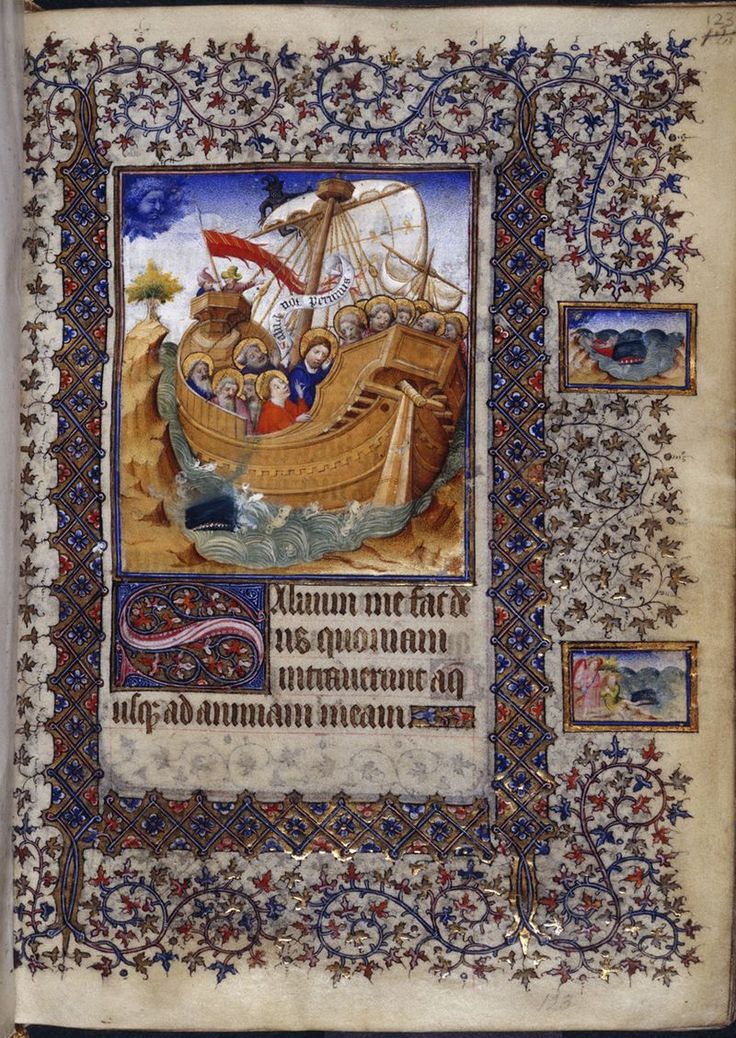 123
nos Perimus
SAluum me fac de
us quoniam
intrauerunt aq
usq; ad animam meam
123